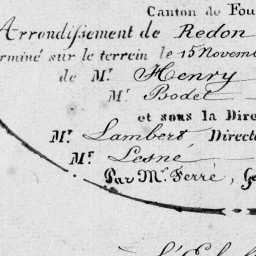 Canton de Fou
Arrondissement de Redon
erminé sur le terrein le 15 Novem
de Mr. Henry
Mr. Bodet
et sous la Dire
Mr. Lambert, Direct
Mr. Lesné
Par Mr. Ferré, Gé